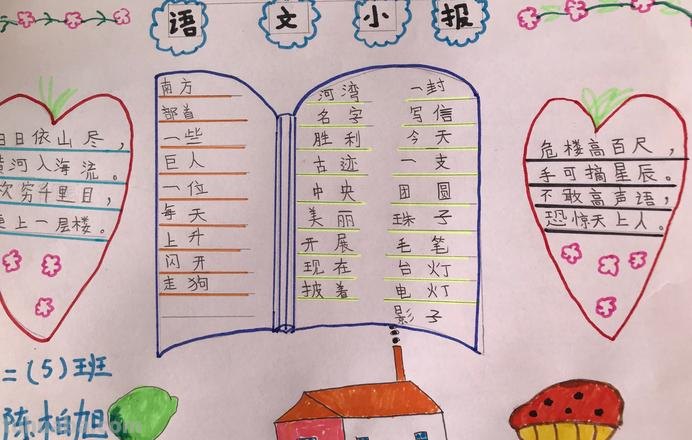 语文小报
白日依山尽，
黄河入海流。
欲穷千里目，
更上一层楼。
南方
部首
一些
巨人
一位
每天
上升
闪开
走狗
河湾
名字
胜利
古迹
中央
美丽
开展
现在
披着
一封
写信
今天
一支
团圆
珠子
毛笔
台灯
电灯
影子
危楼高百尺，
手可摘星辰。
不敢高声语，
恐惊天上人。
二（5）班
陈柏旭